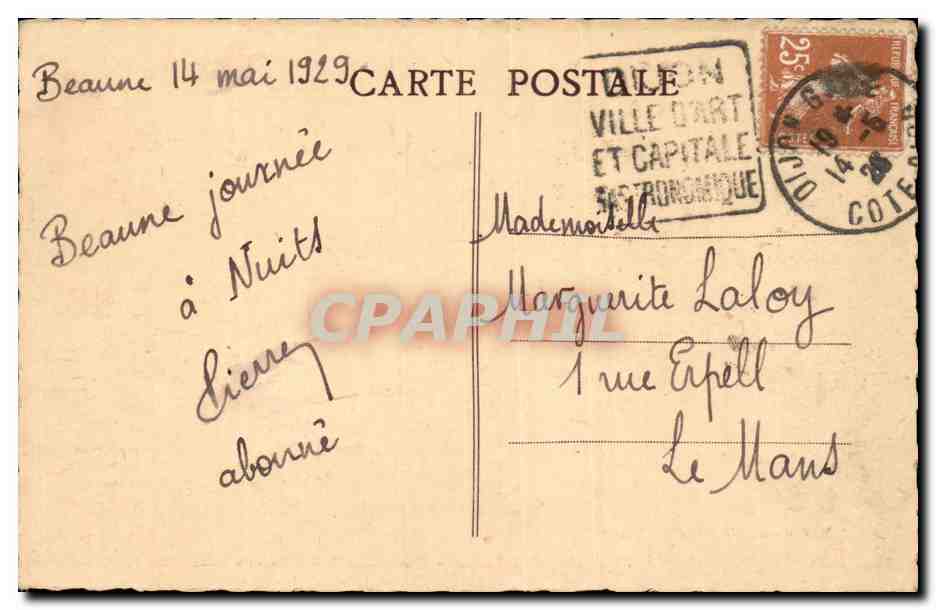 Beaune 14 mai 1929
CARTE POSTALE
DIJON
VILLE D'ART
ET CAPITALE
GASTRONOMIQUE
25c
DIJON
14 -5
COTE D'OR
Beaune journée
à Nuits
Pierre
abonné
Mademoiselle
Marguerite Laloy
1 rue Erpell
Le Mans
CPAPHIL